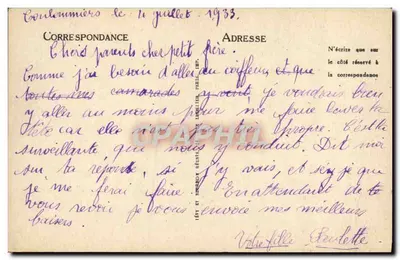 Coulommiers le 4 juillet 1933.
CORRESPONDANCE
ADRESSE
N'écrire que sur
le côté réservé à
la correspondance
Chers parents cher petit frère.
Comme j'ai besoin d'aller au coiffeur et que
toutes mes camarades y vont, je voudrais bien
y aller au moins pour me faire la
tête car elle n'est propre. C'est la
surveillante, que nous y conduit. Dit moi
sur ta reponse, si j'y vais, et s'y que
je me ferai faire. En attendant de te
vous revoir je vous envoie mes meilleurs
baisers.
Votre fille Paulette